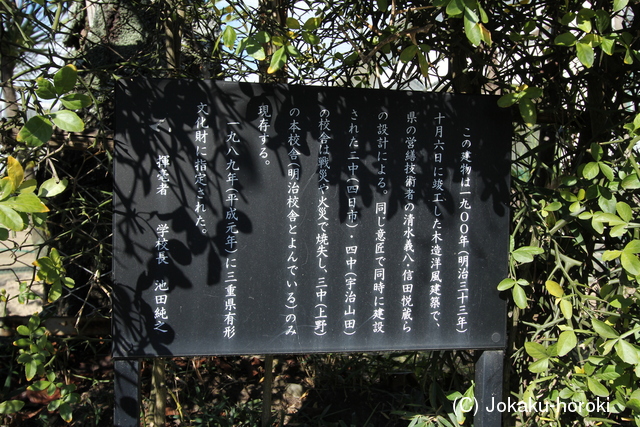 この建物は一九〇〇年(明治三十三年)
十月六日に竣工した木造洋風建築で、
県の営繕技術者の清水義八・信田悦蔵ら
の設計による。同じ意匠で同時に建設
された二中(四日市)・四中(宇治山田)
の校舎は戦災や火災で焼失し、三中(上野)
の本校舎(明治校舎とよんでいる)のみ
現存する。
一九八九年(平成元年)に三重県有形
文化財に指定された。
揮毫者 学校長 池田純之
(C) Jokaku-horoki